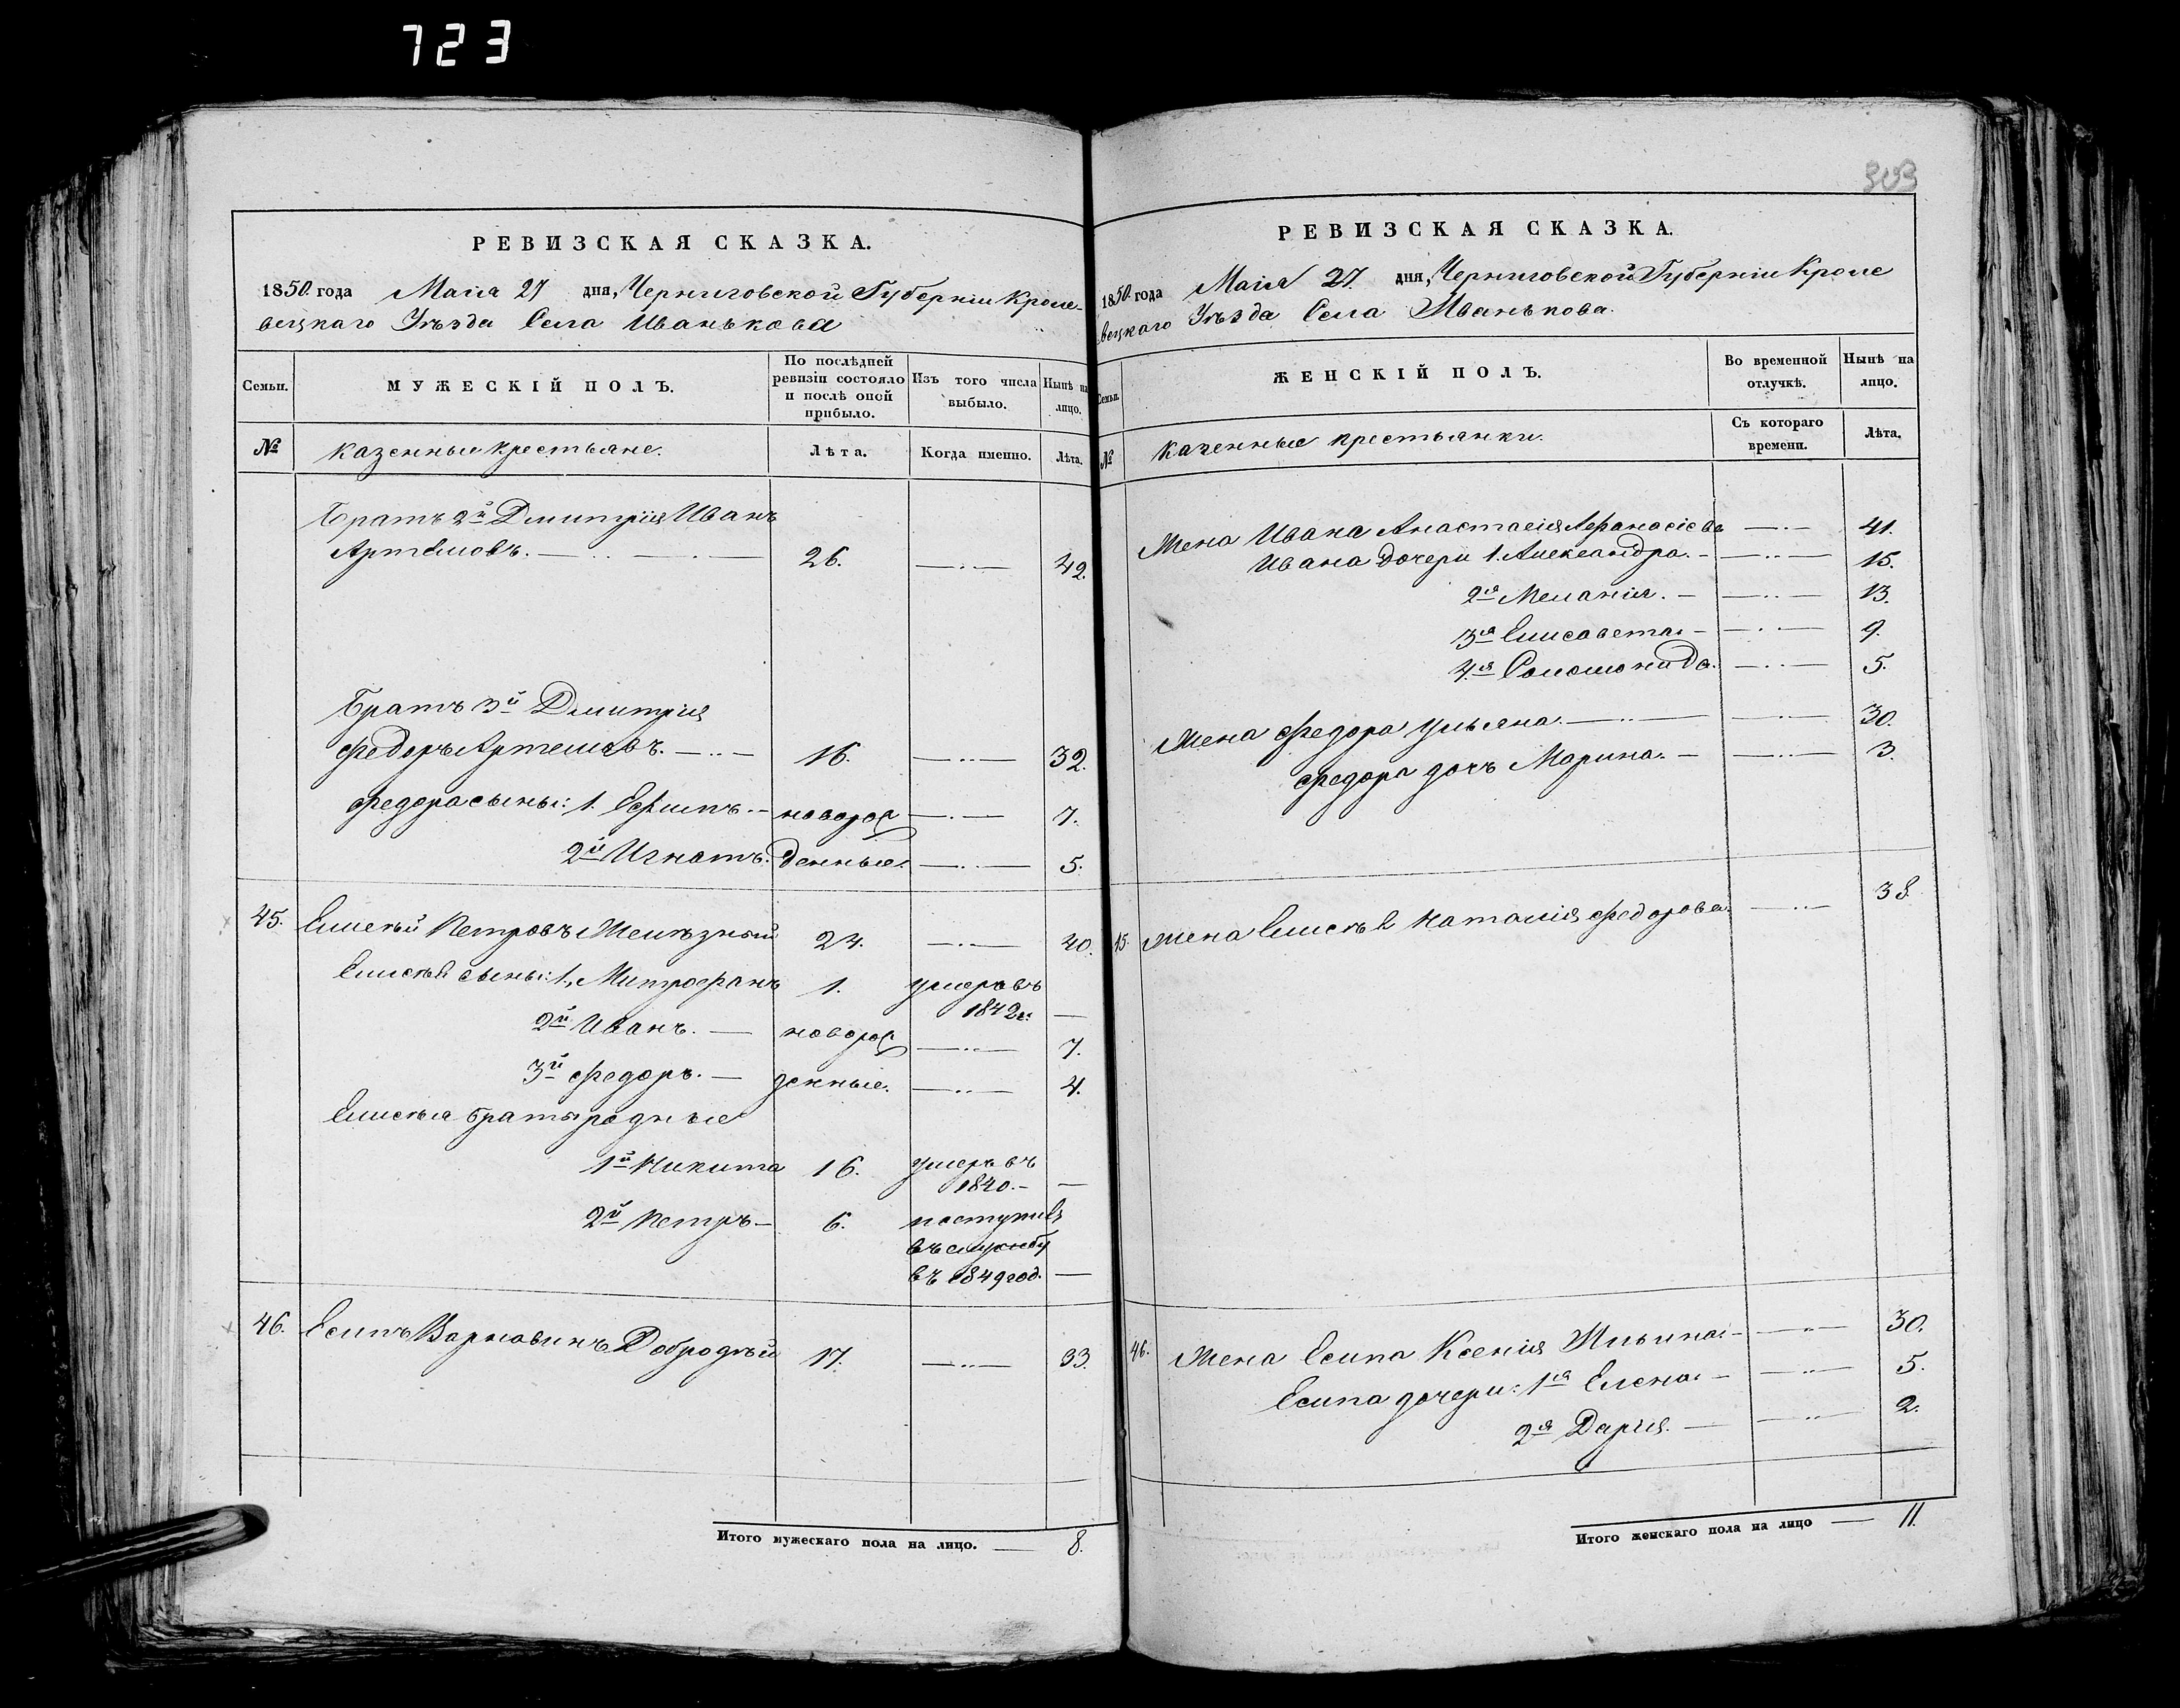 723
РЕВИЗСКАЯ СКАЗКА.
1850. года Маія 27 дня, Черниговской Губерніи Кроле-
вецкаго Уѣзда Села Иванькова
Семьи.
МУЖЕСКІЙ ПОЛЪ.
По послѣдней
ревизіи состояло
и послѣ оной
прибыло.
Изъ того числа
выбыло.
Нынѣ на
лицо.
№
Казенные крестьяне.
Лѣта.
Когда именно.
Лѣта.
Братъ 2й Дмитрія Иванъ
Артемовъ. 26. 42.
Братъ 3й Дмитрія
Федоръ Артемовъ. 16. 32.
Федора сыны: 1. Ефимъ. новорож 7.
2й Игнатъ. денные. 5.
45. Елисѣй Петровъ Желѣзный 24. 40.
Елисѣя сыны: 1, Митрофанъ 1. умеръ въ
1842г: —
2й Иванъ. — новорож 7.
3й Федоръ. — денные. 4.
Елисѣя братья родные
1й Никита 16. умеръ въ
1840. —
2й Петръ — 6. поступилъ
въ службу
въ 1849 год. —
46. Есипъ Варнавинъ Добродѣй 17. 33.
Итого мужескаго пола на лицо. — 8.
303
РЕВИЗСКАЯ СКАЗКА.
1850. года Маія 27. дня, Черниговской Губерніи Кроле
вецкаго Уѣзда Села Иванькова.
Семьи.
ЖЕНСКІЙ ПОЛЪ.
Во временной
отлучкѣ.
Нынѣ на
лицо.
№
Казенные крестьянки.
Съ котораго
времени.
Лѣта.
Жена Ивана Анастасія Афанасіева 41.
Ивана дочери 1. Александра. 15.
2я Меланія. 13.
3я Елисавета. 9.
4я Соломонида. 5.
Жена Федора Ульяна. 30.
Федора дочь Марина. 3.
45. Жена Елисѣя Наталія Федорова. 38.
46. Жена Есипа Ксенія Ильина. 30.
Есипа дочери: 1я Елена. 5.
2я Дарія. 2.
Итого женскаго пола на лицо — 11.